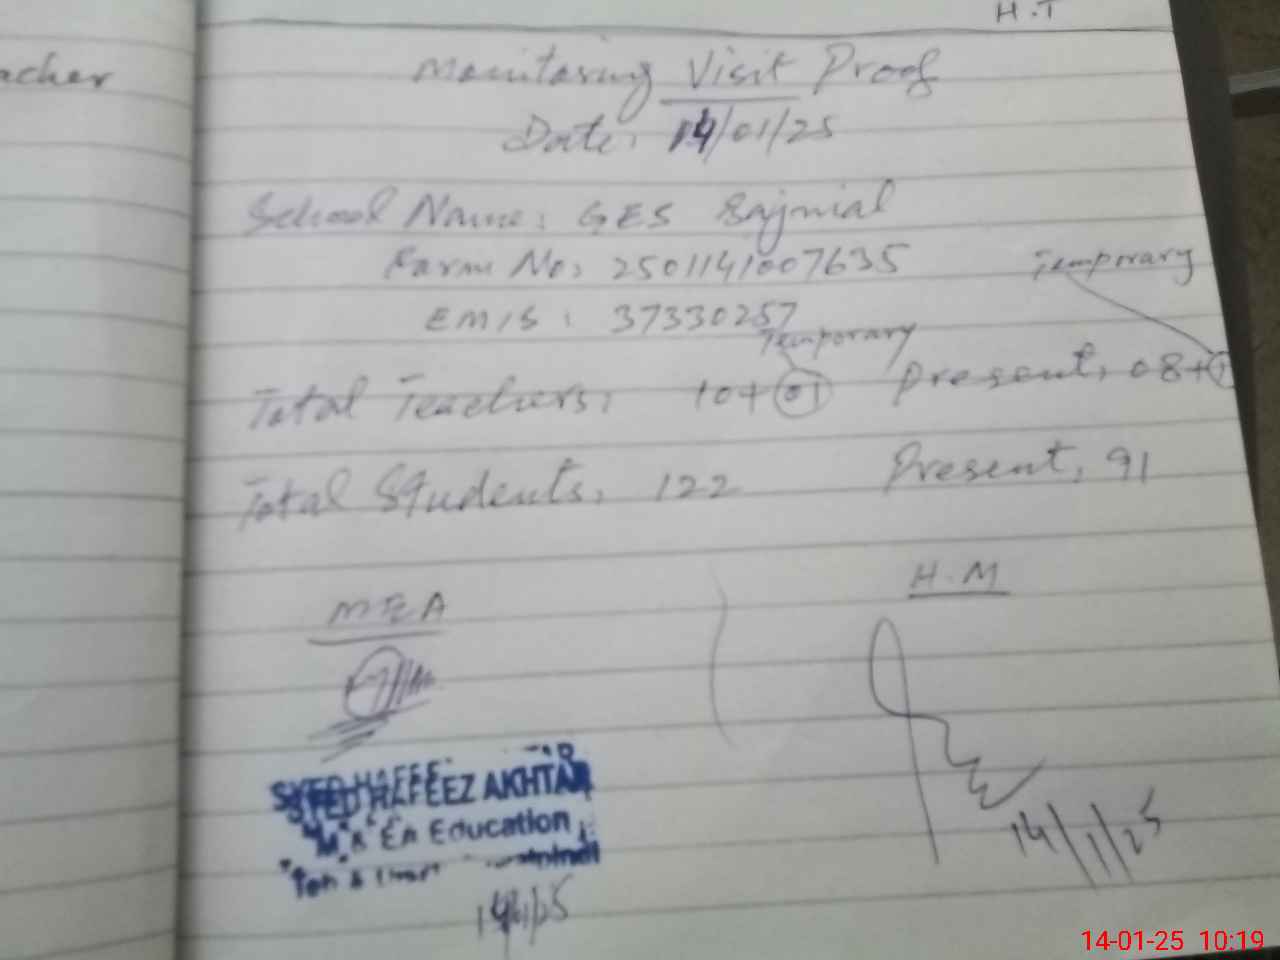 acher
H.T
Monitoring Visit Proof
Date: 14/01/25
School Name: GES Sajmial
Farm No: 2501141007635
Temporary
EMIS: 37330257
Temporary
Total Teachers: 10+01 Present: 08+1
Total Students: 122 Present: 91
MEA
H.M
SYED HAFEEZ AKHTAR
M & EA Education
14/1/25
14/1/25
14-01-25 10:19